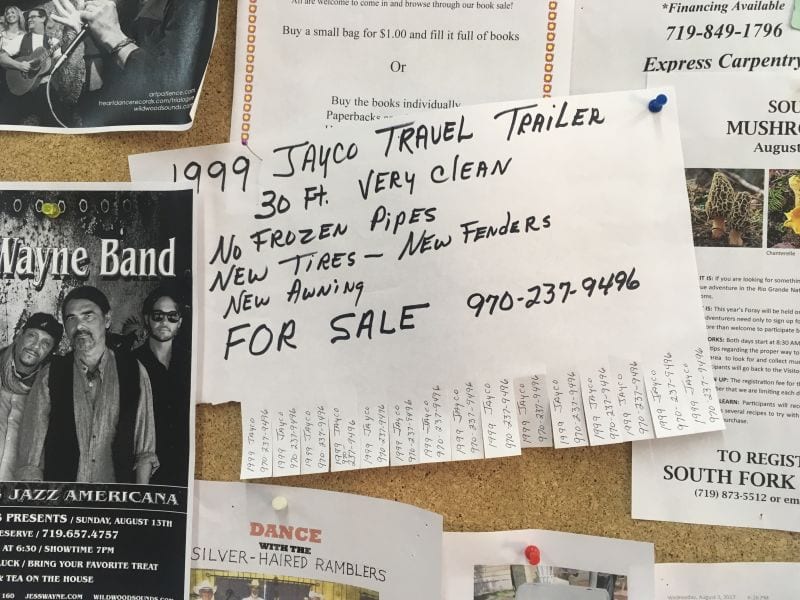 artpatience.com
heartdancerecords.com/trialogue
wildwoodsounds.com
All are welcome to come in and browse through our book sale!
Buy a small bag for $1.00 and fill it full of books
Or
Buy the books individually
Paperbacks
*Financing Available
719-849-1796
Express Carpentry
SOU
MUSHRO
August
Chanterelle
1999 JAYCO TRAVEL TRAILER
30 Ft. VERY CLEAN
NO FROZEN PIPES
NEW TIRES — NEW FENDERS
NEW AWNING
FOR SALE 970-237-9496
1999 Jayco
970-237-9496
1999 Jayco
970-237-9496
1999 Jayco
970-237-9496
1999 Jayco
970-237-9496
1999 Jayco
970-237-9496
1999 Jayco
970-237-9496
1999 Jayco
970-237-9496
1999 Jayco
970-237-9496
1999 Jayco
970-237-9496
1999 Jayco
970-237-9496
1999 Jayco
970-237-9496
1999 Jayco
970-237-9496
1999 Jayco
970-237-9496
1999 Jayco
970-237-9496
1999 Jayco
970-237-9496
IT IS: If you are looking for something
ue adventure in the Rio Grande Nat
IS: This year's Foray will be held on
dventurers need only to sign up fo
ore than welcome to participate b
ORKS: Both days start at 8:30 AM
tips regarding the proper way to
area to look for and collect mus
ipants will go back to the Visito
N UP: The registration fee for th
er that we are limiting each d
LEARN: Participants will rec
several recipes to try with
purchase.
TO REGIST
SOUTH FORK
(719) 873-5512 or em
Wayne Band
JAZZ AMERICANA
PRESENTS / SUNDAY, AUGUST 13TH
ESERVE / 719.657.4757
AT 6:30 / SHOWTIME 7PM
LUCK / BRING YOUR FAVORITE TREAT
& TEA ON THE HOUSE
160 JESSWAYNE.COM WILDWOODSOUNDS.
DANCE
WITH THE
SILVER-HAIRED RAMBLERS
Wednesday, August 2, 2017